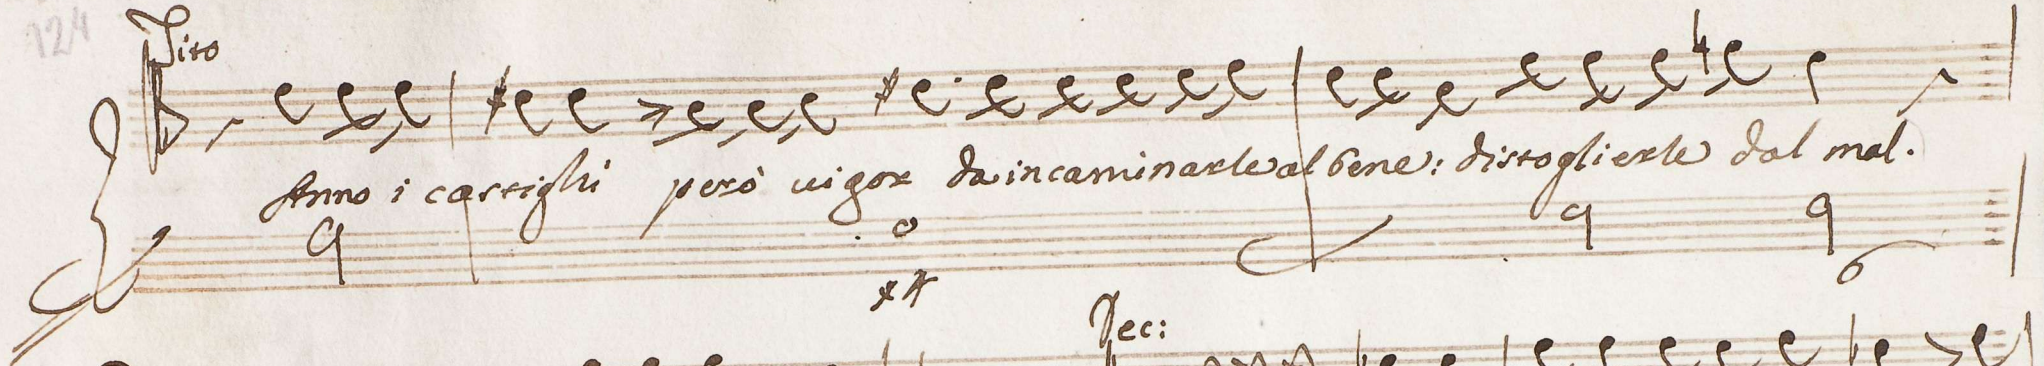 124
Tito
Anno i castighi però uigor da incaminarle al bene: distoglierle dal mal.
6
x4